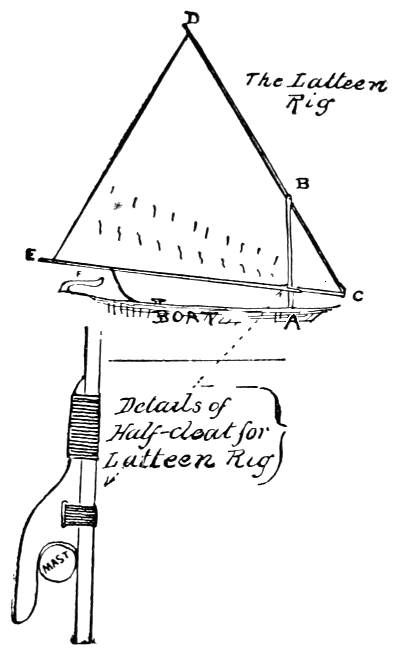 D
The Latteen
Rig
B
E
F
C
BOAT
A
Details of
Half-cleat for
Latteen Rig
MAST